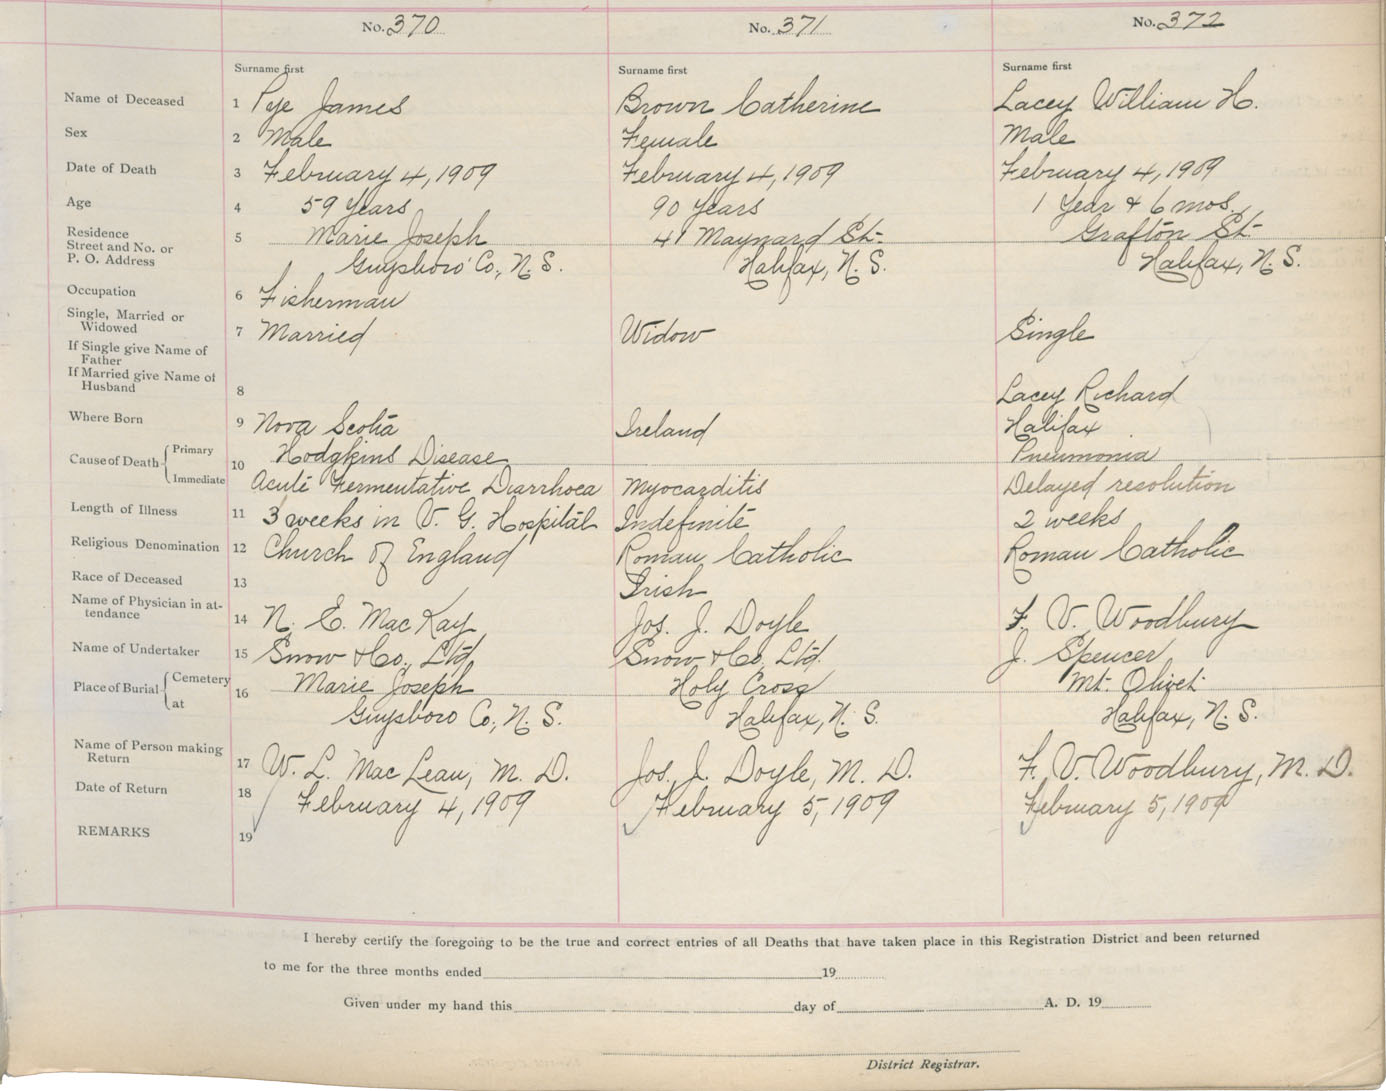 No. 370 No. 371 No. 372
Surname first Surname first Surname first
Name of Deceased 1 Pye James Brown Catherine Lacey William H.
Sex 2 Male Female Male
Date of Death 3 February 4, 1909 February 4, 1909 February 4, 1909
Age 4 59 Years 90 Years 1 Year & 6 mos.
Residence
Street and No. or 5 Marie Joseph 41 Maynard St. Grafton St.
P. O. Address Guysboro' Co., N. S. Halifax, N. S. Halifax, N. S.
Occupation 6 Fisherman
Single, Married or
Widowed 7 Married Widow Single
If Single give Name of
Father
If Married give Name of
Husband 8 Lacey Richard
Where Born 9 Nova Scotia Ireland Halifax
Cause of Death Primary 10 Hodgkins Disease Pneumonia
Immediate Acute Fermentative Diarrhoea Myocarditis Delayed resolution
Length of Illness 11 3 weeks in V. G. Hospital Indefinite 2 weeks
Religious Denomination 12 Church of England Roman Catholic Roman Catholic
Race of Deceased 13 Irish
Name of Physician in at-
tendance 14 N. E. MacKay Jos. J. Doyle F. V. Woodbury
Name of Undertaker 15 Snow & Co., Ltd. Snow & Co., Ltd. J. Spencer
Place of Burial Cemetery 16 Marie Joseph Holy Cross Mt. Olivet
at Guysboro Co., N. S. Halifax, N. S. Halifax, N. S.
Name of Person making
Return 17 W. L. MacLean, M. D. Jos. J. Doyle, M. D. F. V. Woodbury, M. D.
Date of Return 18 February 4, 1909 February 5, 1909 February 5, 1909
REMARKS 19
I hereby certify the foregoing to be the true and correct entries of all Deaths that have taken place in this Registration District and been returned
to me for the three months ended 19
Given under my hand this day of A. D. 19
District Registrar.